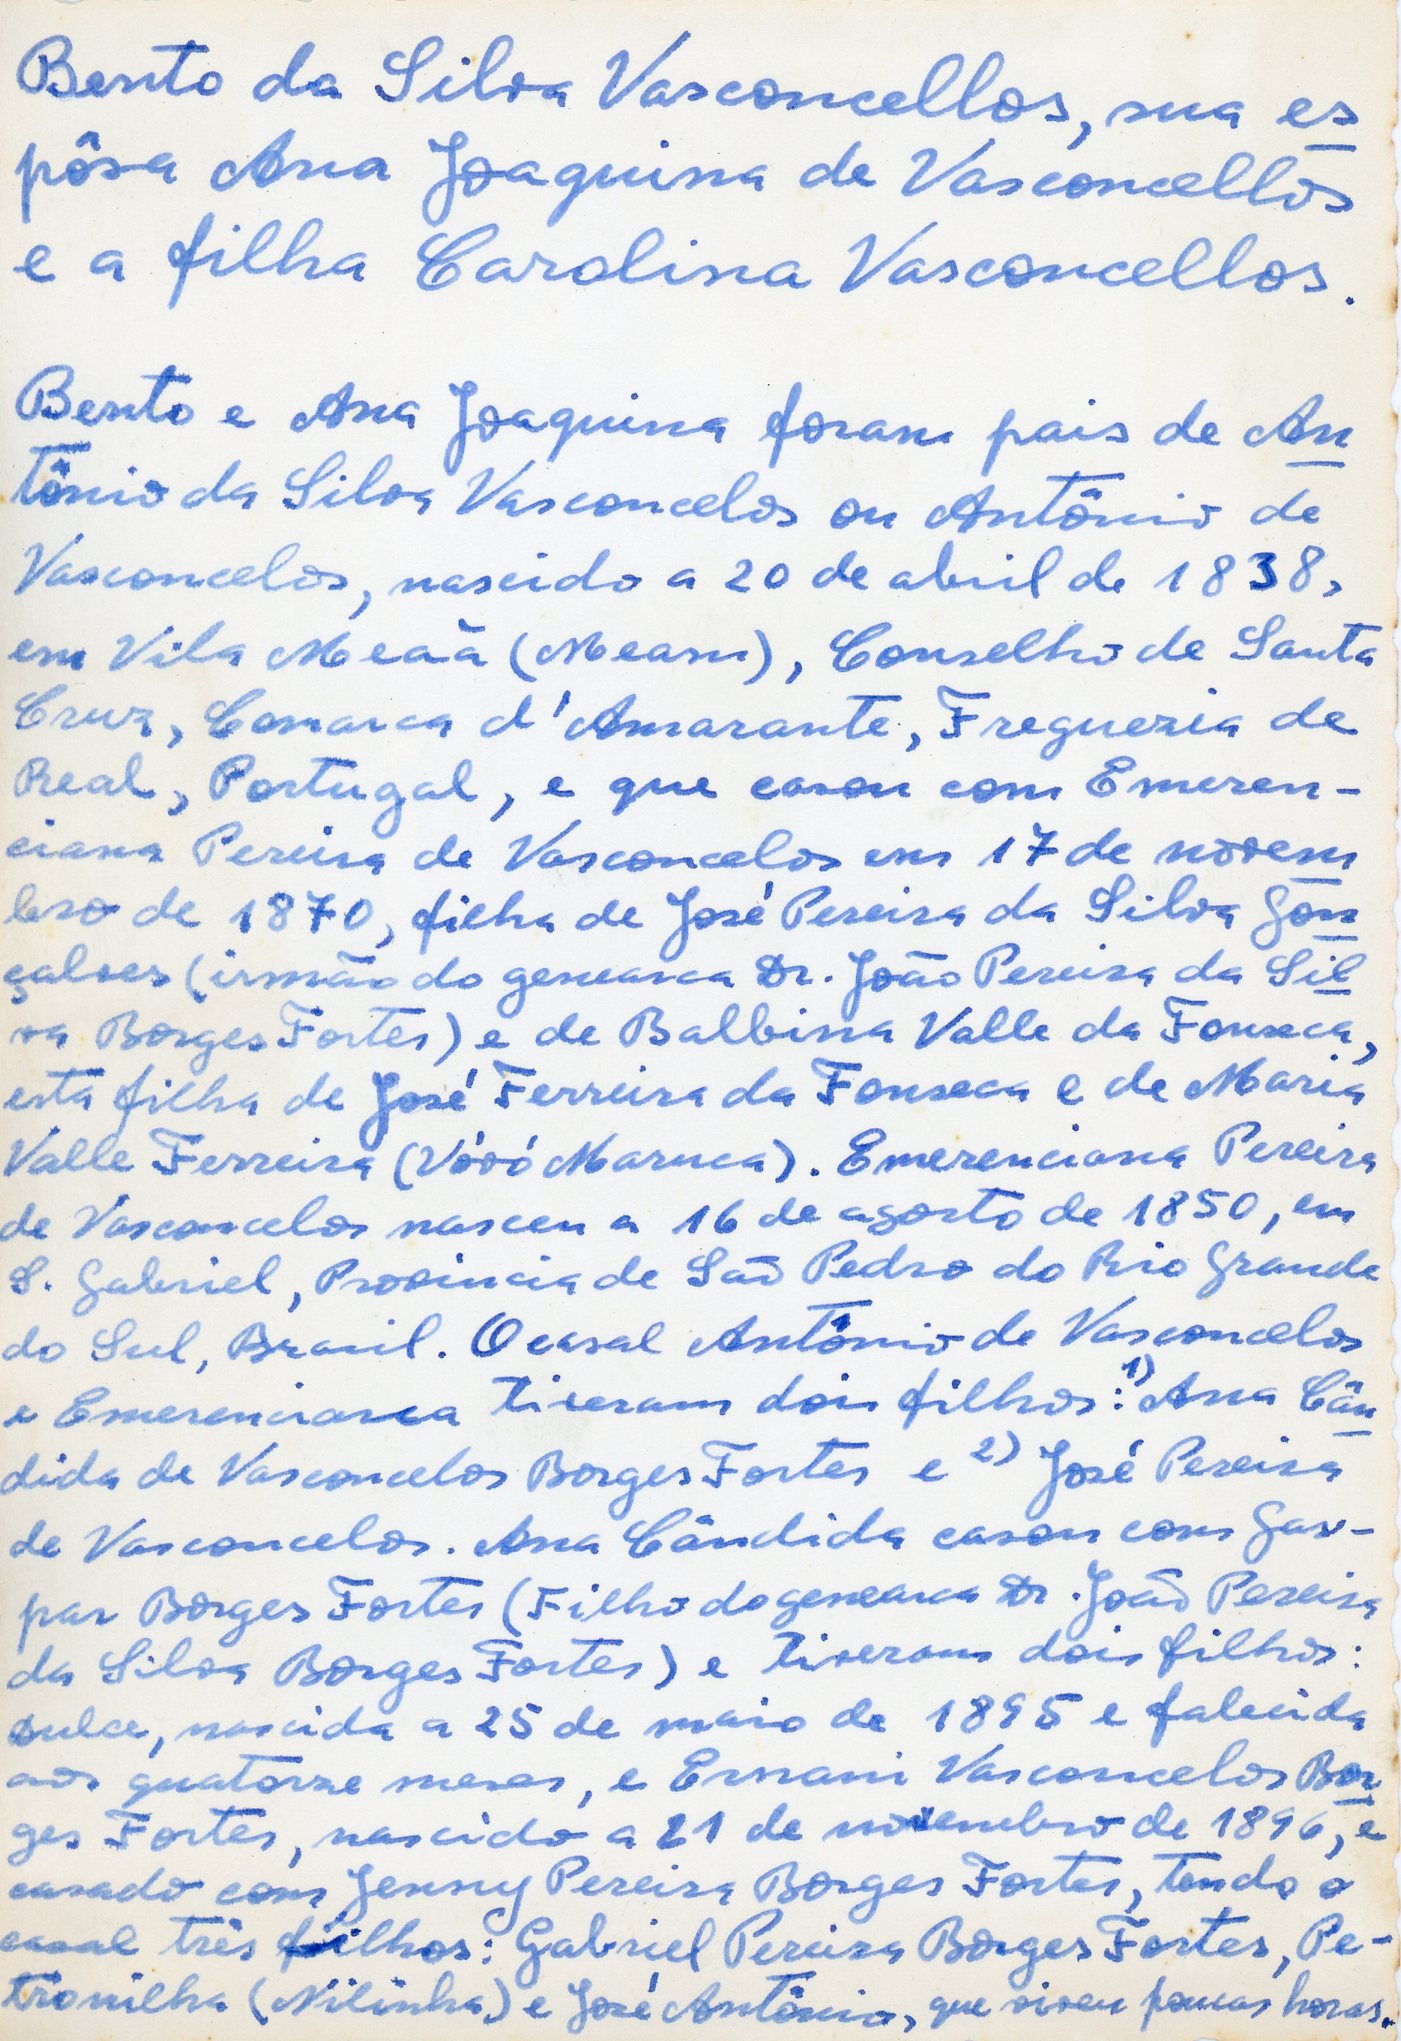 Bento da Silva Vasconcellos, sua es
pôsa Ana Joaquina de Vasconcellos
e a filha Carolina Vasconcellos.
Bento e Ana Joaquina foram pais de An
tônio da Silva Vasconcelos ou Antônio de
Vasconcelos, nascido a 20 de abril de 1838,
em Vila Meaã (Meam), Conselho de Santa
Cruz, Comarca d'Amarante, Freguezia de
Real, Portugal, e que casou com Emeren-
ciana Pereira de Vasconcelos em 17 de novem
bro de 1870, filha de José Pereira da Silva Gon
çalves (irmão do genearca Dr. João Pereira da Sil
va Borges Fortes) e de Balbina Valle da Fonseca,
esta filha de José Ferreira da Fonseca e de Maria
Valle Ferreira (Vóvó Maruca). Emerenciana Pereira
de Vasconcelos nasceu a 16 de agosto de 1850, em
S. Gabriel, Provincia de São Pedro do Rio Grande
do Sul, Brasil. O casal Antônio de Vasconcelos
e Emerenciana tiveram dois filhos: 1) Ana Cân
dida de Vasconcelos Borges Fortes e 2) José Pereira
de Vasconcelos. Ana Cândida casou com Gas-
par Borges Fortes (Filho do genearca Dr. João Pereira
da Silva Borges Fortes) e tiveram dois filhos:
Dulce, nascida a 25 de maio de 1895 e falecida
aos quatorze meses, e Ernani Vasconcelos Bor
ges Fortes, nascido a 21 de novembro de 1896, e
casado com Jenny Pereira Borges Fortes, tendo o
casal três filhos: Gabriel Pereira Borges Fortes, Pe-
tronilha (Nilinha) e José Antônio, que viveu poucas horas.